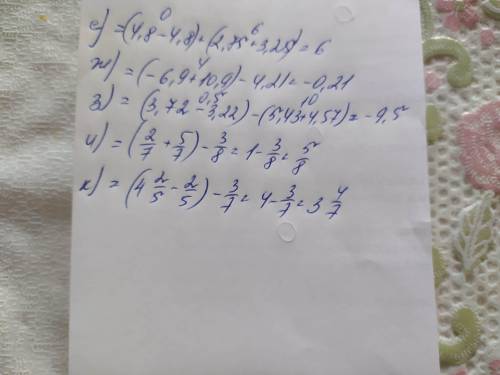 0 6
е) =(4,8-4,8)+(2,75+3,25)=6
4
ж) =(-6,9+10,9)-4,21=-0,21
0,5 10
з) =(3,72-3,22)-(5,43+4,57)=-9,5
и) =(2/7+5/7)-3/8=1-3/8=5/8
к) =(4 2/5-2/5)-3/7=4-3/7=3 4/7